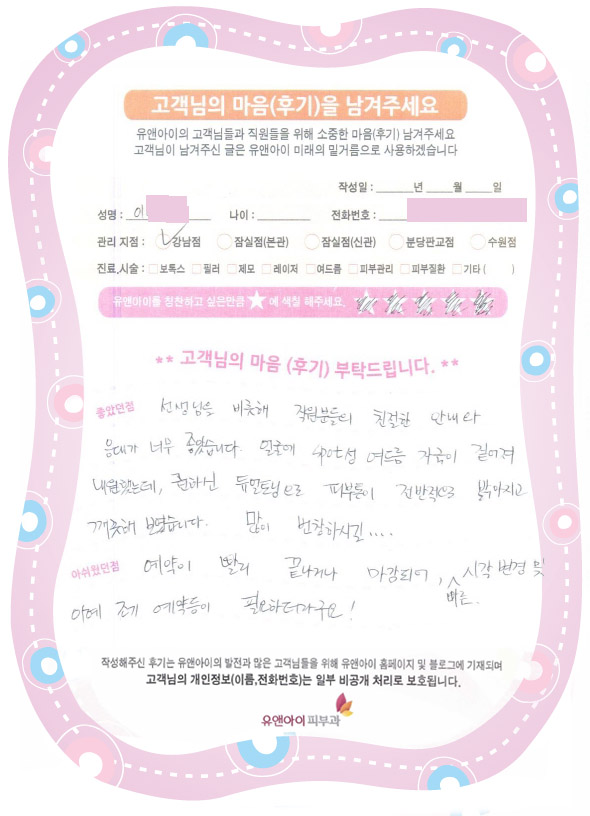 고객님의 마음(후기)을 남겨주세요
유앤아이의 고객님들과 직원들을 위해 소중한 마음(후기) 남겨주세요
고객님이 남겨주신 글은 유앤아이 미래의 밑거름으로 사용하겠습니다
작성일 : 년 월 일
성명 : 이 나이 : 전화번호 :
관리 지점 : 강남점 잠실점(본관) 잠실점(신관) 분당판교점 수원점
진료,시술 : 보톡스 필러 제모 레이저 여드름 피부관리 피부질환 기타 ( )
유앤아이를 칭찬하고 싶은만큼 ★에 색칠 해주세요.
** 고객님의 마음 (후기) 부탁드립니다. **
좋았던점 선생님을 비롯해 직원분들의 친절한 안내와
응대가 너무 좋았습니다. 얼굴에 spot성 여드름 자국이 짙어져
내원했는데, 권하신 듀얼토닝으로 피부톤이 전반적으로 밝아지고
깨끗해 보였습니다. 많이 번창하시길....
아쉬웠던점 예약이 빨리 끝나거나 마감되어, 빠른 시각 변경 및
아예 조기 예약등이 필요하더라구요!
작성해주신 후기는 유앤아이의 발전과 많은 고객님들을 위해 유앤아이 홈페이지 및 블로그에 기재되며
고객님의 개인정보(이름,전화번호)는 일부 비공개 처리로 보호됩니다.
유앤아이피부과